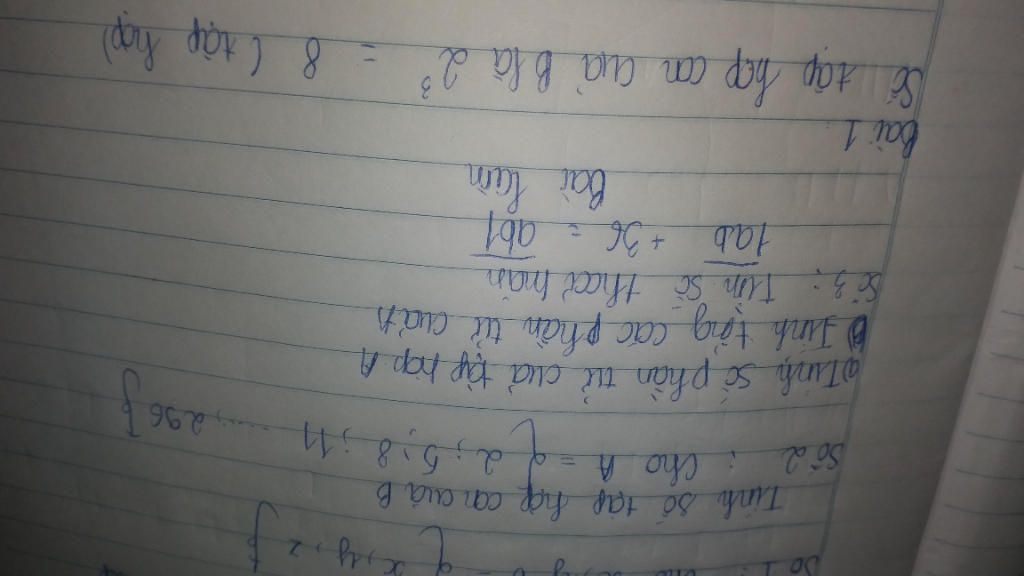 Số 1: Cho = { x, y, z }
Tính số tập hợp con của B
Số 2: Cho A = { 2; 5; 8; 11 ....; 296 }
a) Tính số phần tử của tập hợp A
b) Tính tổng các phần tử của A
Số 3: Tìm số thoả mãn
1ab + 36 = ab1
Bài làm
Bài 1:
Số tập hợp con của B là 2³ = 8 (tập hợp)